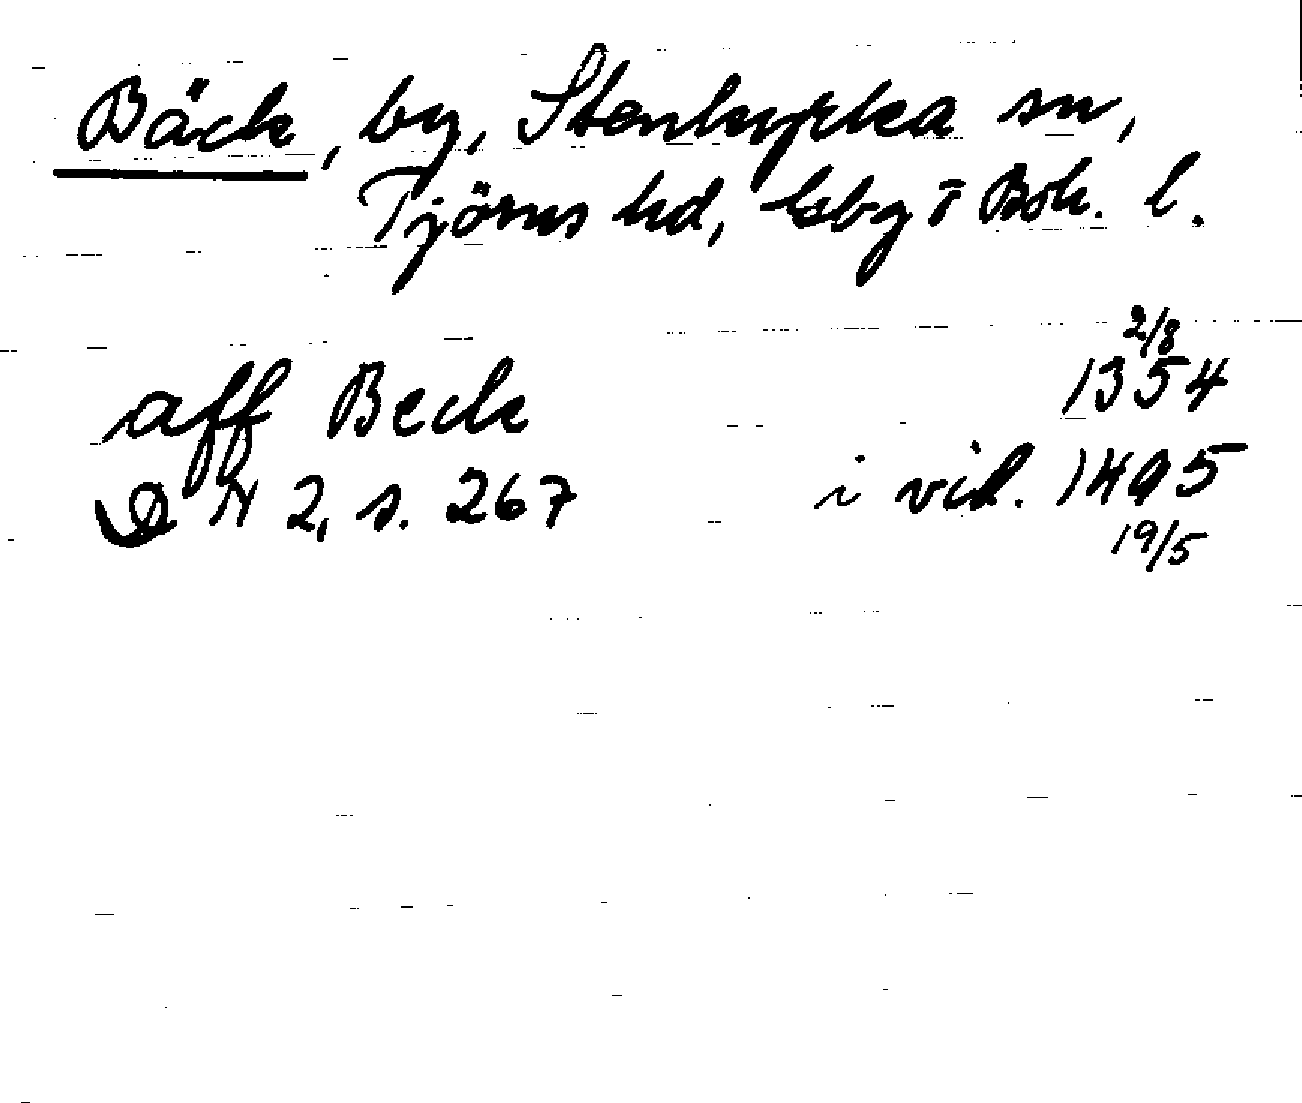 Bäck, by, Stenkyrka sn,
Tjörns hd, Gbg i Boh. l.
2/8
aff Beck 1354
DN 2, s. 267 i vid. 1495
19/5